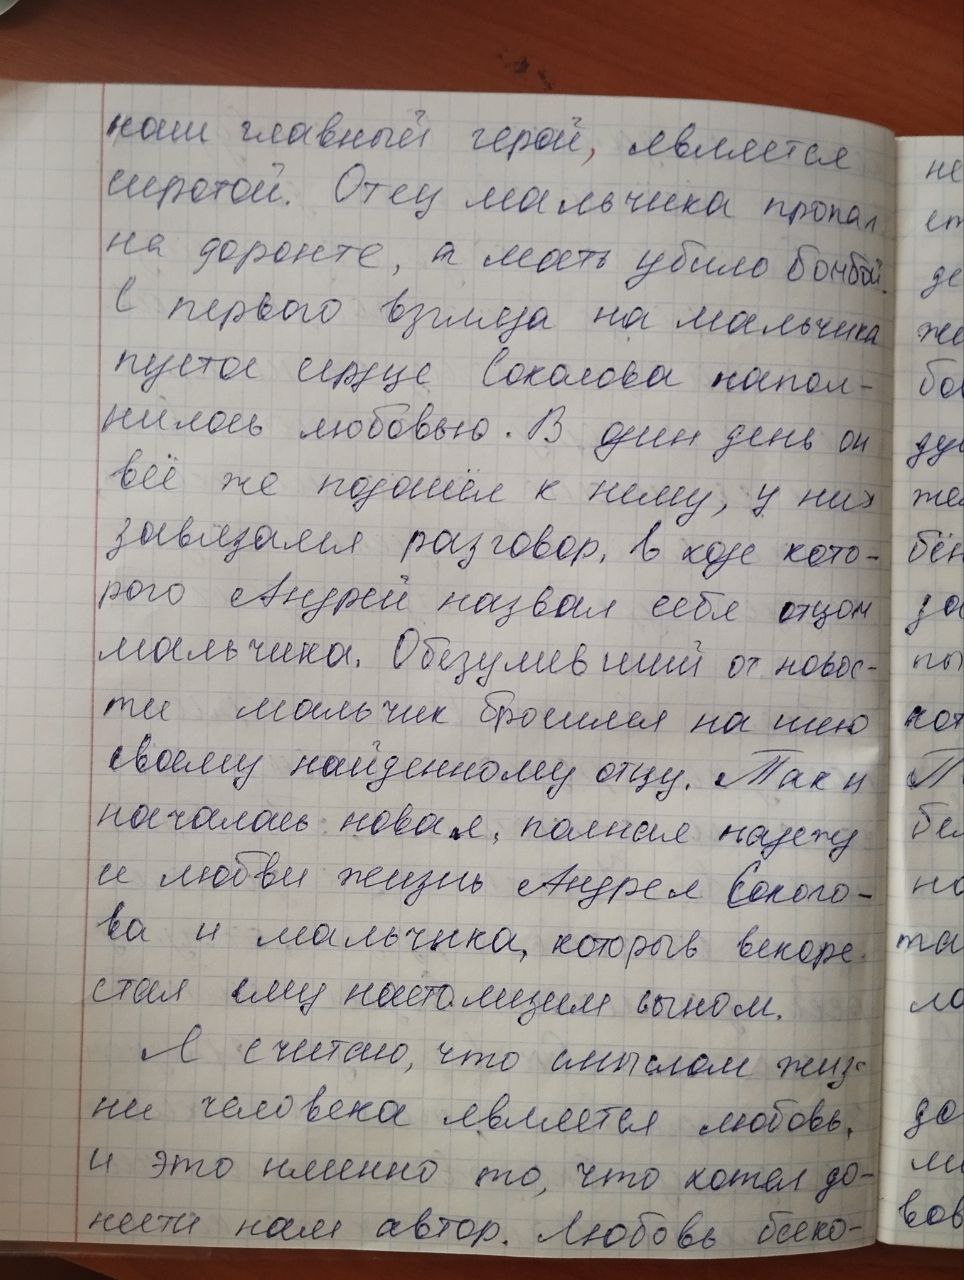 наш главный герой, является
сиротой. Отец мальчика пропал
на фронте, а мать убило бомбой.
С первого взгляда на мальчика
пустое сердце Соколова напол-
нилось любовью. В один день он
всё же подошёл к нему, у них
завязался разговор, в ходе кото-
рого Андрей назвал себя отцом
мальчика. Обезумевший от новос-
ти мальчик бросился на шею
своему найденному отцу. Так и
началась новая, полная надежд
и любви жизнь Андрея Соколо-
ва и мальчика, который вскоре
стал ему настоящим сыном.
Я считаю, что смыслом жиз-
ни человека является любовь,
и это именно то, что хотел до-
нести нам автор. Любовь беско-
не
ст
де
же
бо
ду
же
бён
за
пы
кот
П
бел
но
та
ло
до
ми
вов